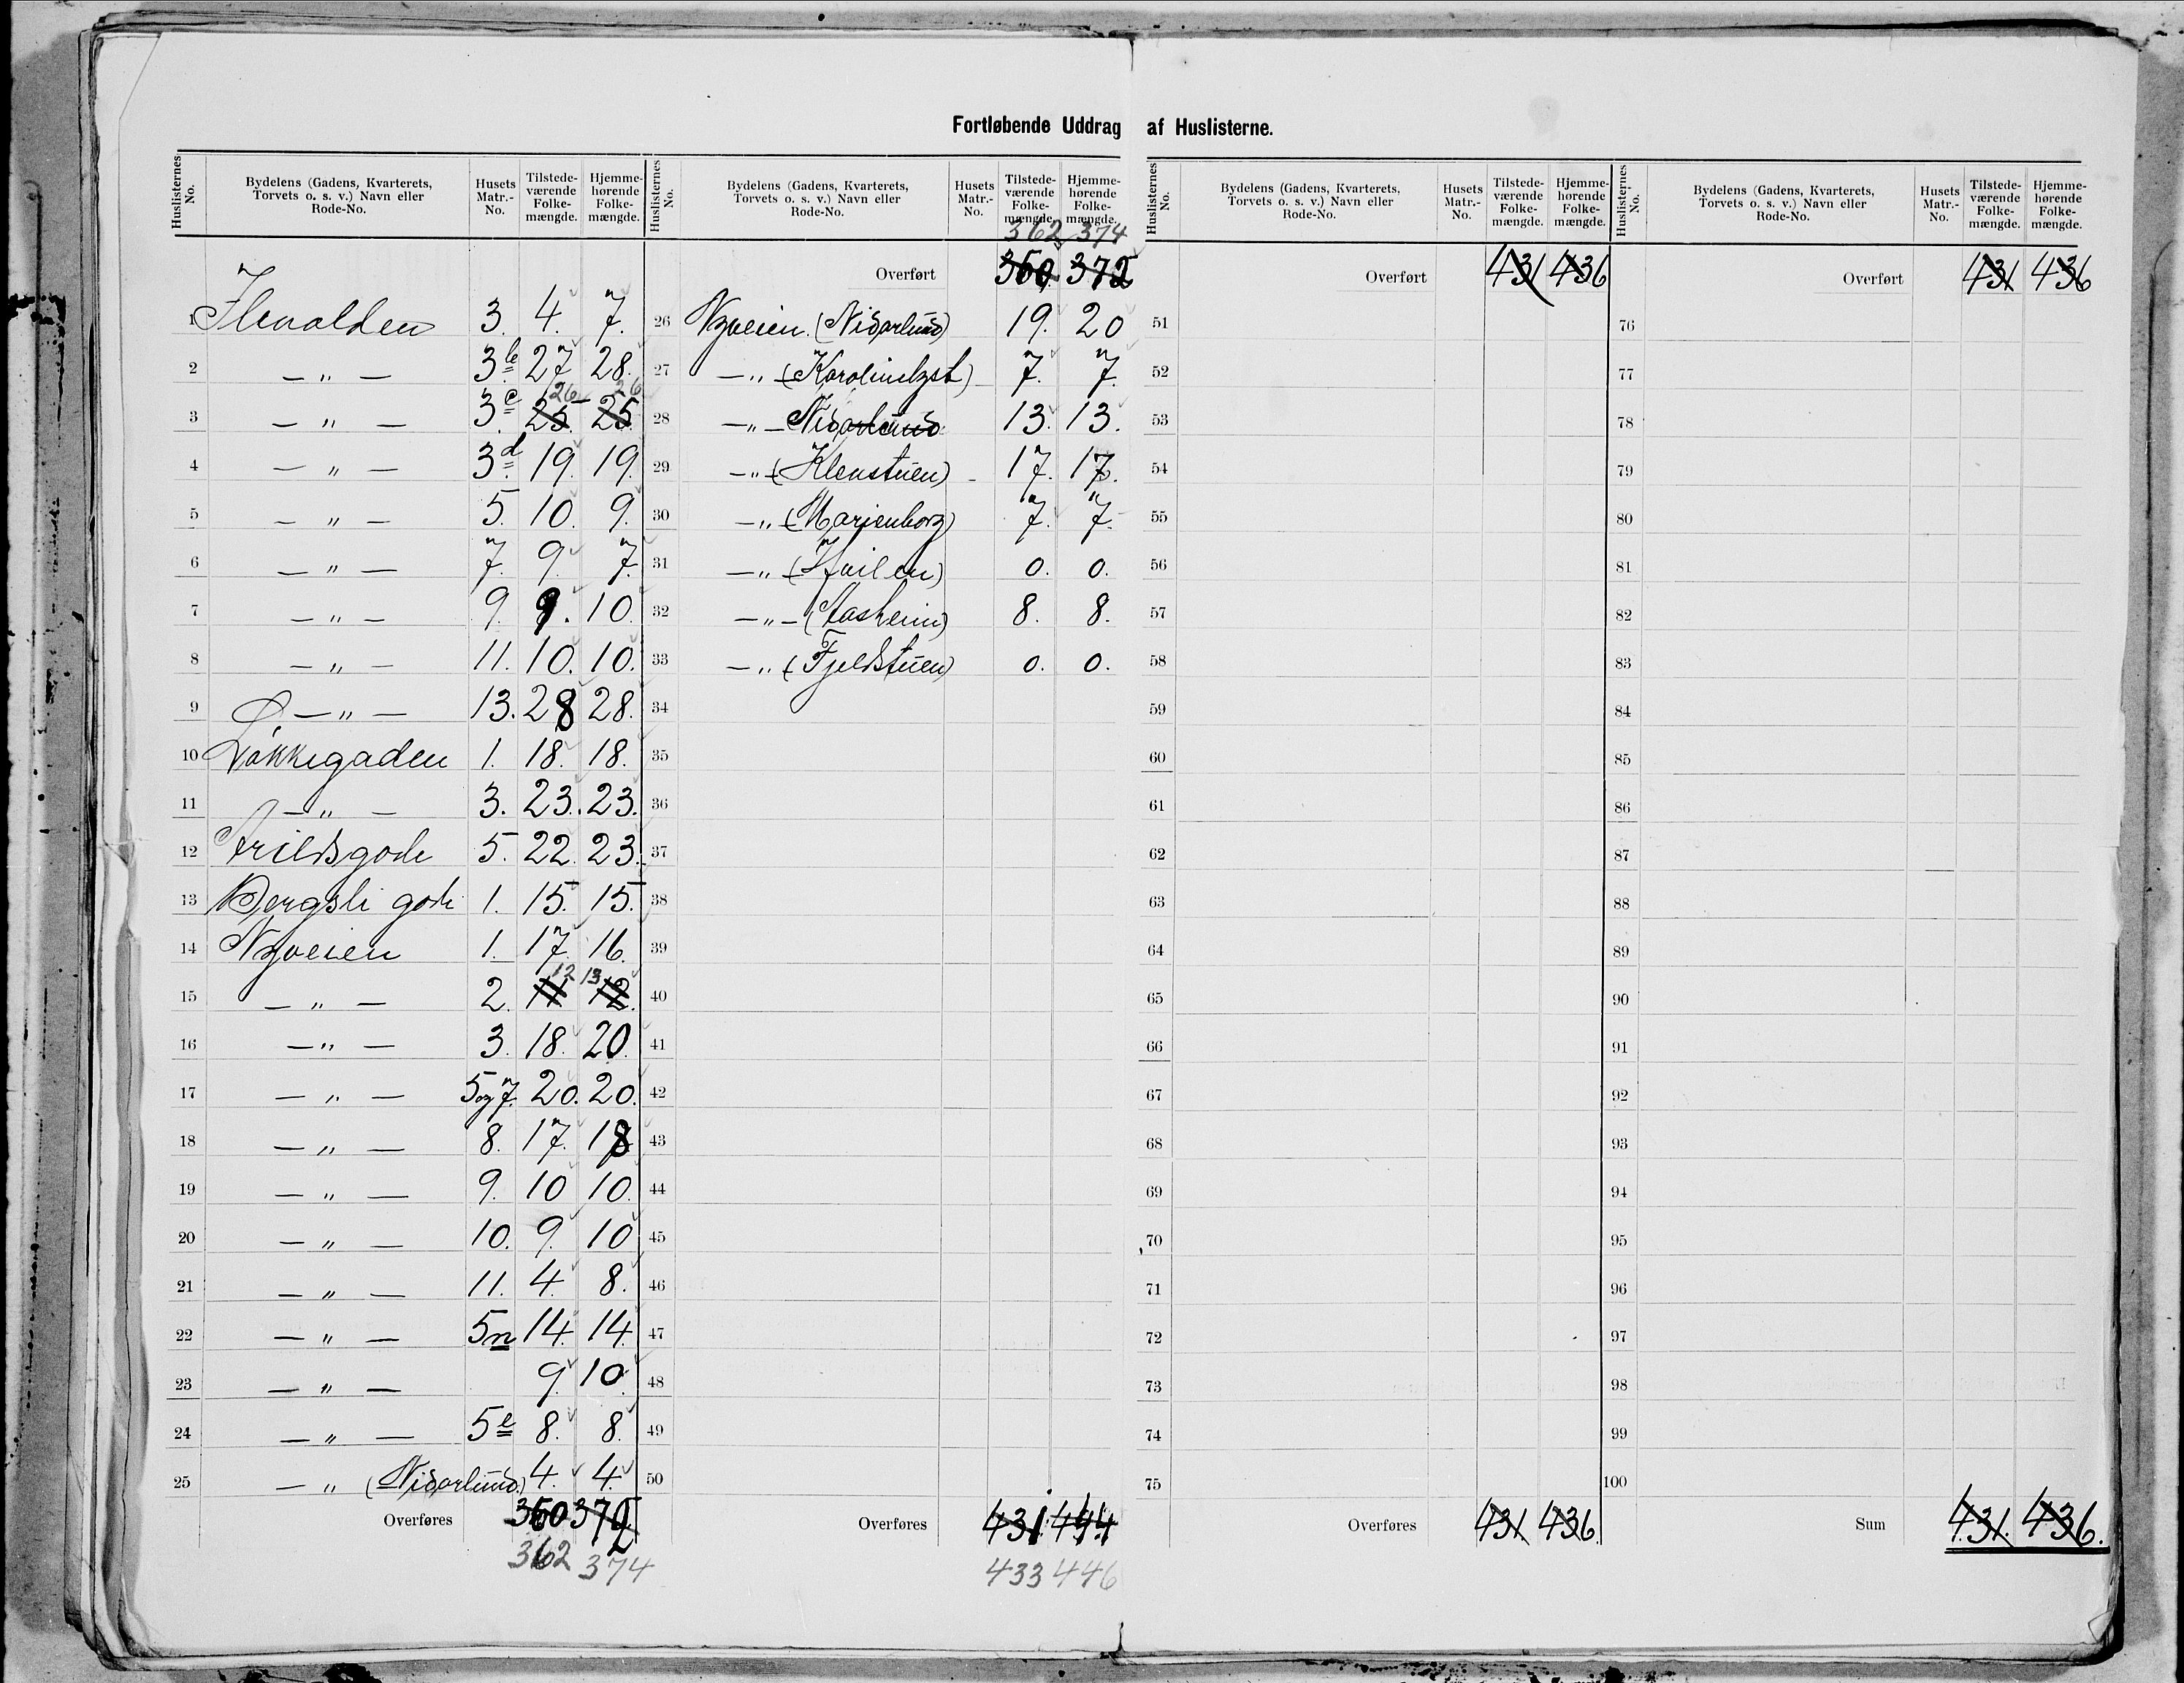 Fortløbende Uddrag af Huslisterne.
Huslisternes No. Bydelens (Gadens, Kvarterets, Torvets o. s. v.) Navn eller Rode-No. Husets Matr.-No. Tilstedeværende Folkemængde. Hjemmehørende Folkemængde.
1 Ilevolden 3. 4. 7.
2 — " — 3b 27 28.
3 — " — 3c 25. 26 25. 26
4 — " — 3d 19. 19.
5 — " — 5. 10. 9.
6 — " — 7. 9. 7.
7 — " — 9. 9. 10.
8 — " — 11. 10. 10.
9 — " — 13. 28 28.
10 Løkkegaden 1. 18. 18.
11 — " — 3. 23. 23.
12 Arildsgade 5. 22. 23.
13 Bergsli gade 1. 15. 15.
14 Nyveien 1. 17. 16.
15 — " — 2. 11 12 12. 13
16 — " — 3. 18. 20.
17 — " — 5 og 7. 20. 20.
18 — " — 8. 17. 18
19 — " — 9. 10 10.
20 — " — 10. 9. 10
21 — " — 11. 4. 8.
22 — " — 5n 14. 14.
23 — " — 9. 10.
24 — " — 5e 8. 8.
25 — " (Nidarlund.) 4. 4.
Overføres 360 372
362 374
Huslisternes No. Bydelens (Gadens, Kvarterets, Torvets o. s. v.) Navn eller Rode-No. Husets Matr.-No. Tilstedeværende Folkemængde. Hjemmehørende Folkemængde.
362 374
Overført 360. 372
26 Nyveien. (Nidarlund) 19. 20
27 — " — (Karolinelyst) 7. 7.
28 — " — Nidarlund 13. 13.
29 — " — (Klenstuen) 17. 17.
30 — " — (Marienborg) 7. 7.
31 — " — (Hvilen) 0. 0.
32 — " — (Aasheim) 8. 8.
33 — " — (Fjeldstuen) 0. 0.
34
35
36
37
38
39
40
41
42
43
44
45
46
47
48
49
50
Overføres 431 444
433 446
Huslisternes No. Bydelens (Gadens, Kvarterets, Torvets o. s. v.) Navn eller Rode-No. Husets Matr.-No. Tilstedeværende Folkemængde. Hjemmehørende Folkemængde.
Overført 431 436
51
52
53
54
55
56
57
58
59
60
61
62
63
64
65
66
67
68
69
70
71
72
73
74
75
Overføres 431. 436.
Huslisternes No. Bydelens (Gadens, Kvarterets, Torvets o. s. v.) Navn eller Rode-No. Husets Matr.-No. Tilstedeværende Folkemængde. Hjemmehørende Folkemængde.
Overført 431 436
76
77
78
79
80
81
82
83
84
85
86
87
88
89
90
91
92
93
94
95
96
97
98
99
100
Sum 431. 436.